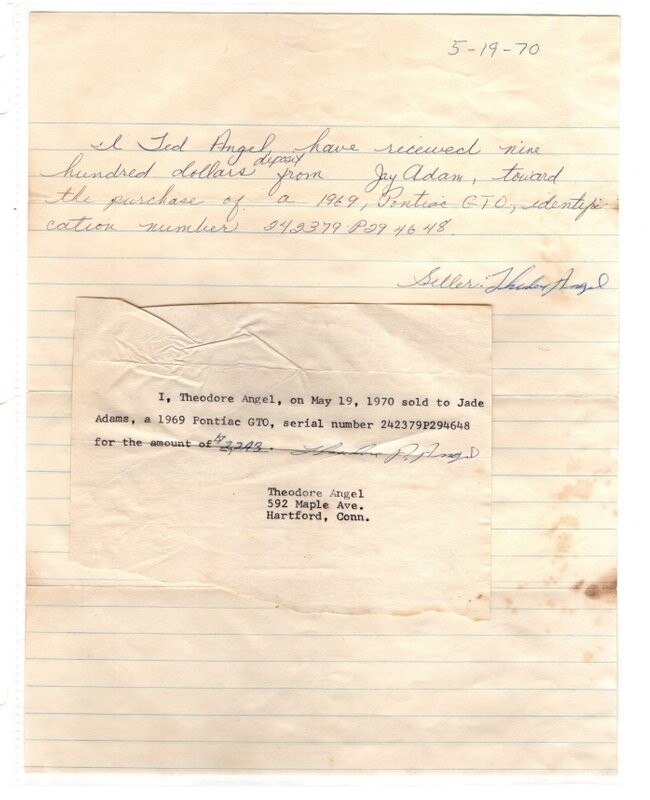 5-19-70
I Ted Angel, have received nine
hundred dollars deposit from Jay Adam, toward
the purchase of a 1969, Pontiac GTO, identifi-
cation number 242379P294648.
Seller: Theodore Angel
I, Theodore Angel, on May 19, 1970 sold to Jade
Adams, a 1969 Pontiac GTO, serial number 242379P294648
for the amount of $2,243. Theodore P. Angel
Theodore Angel
592 Maple Ave.
Hartford, Conn.